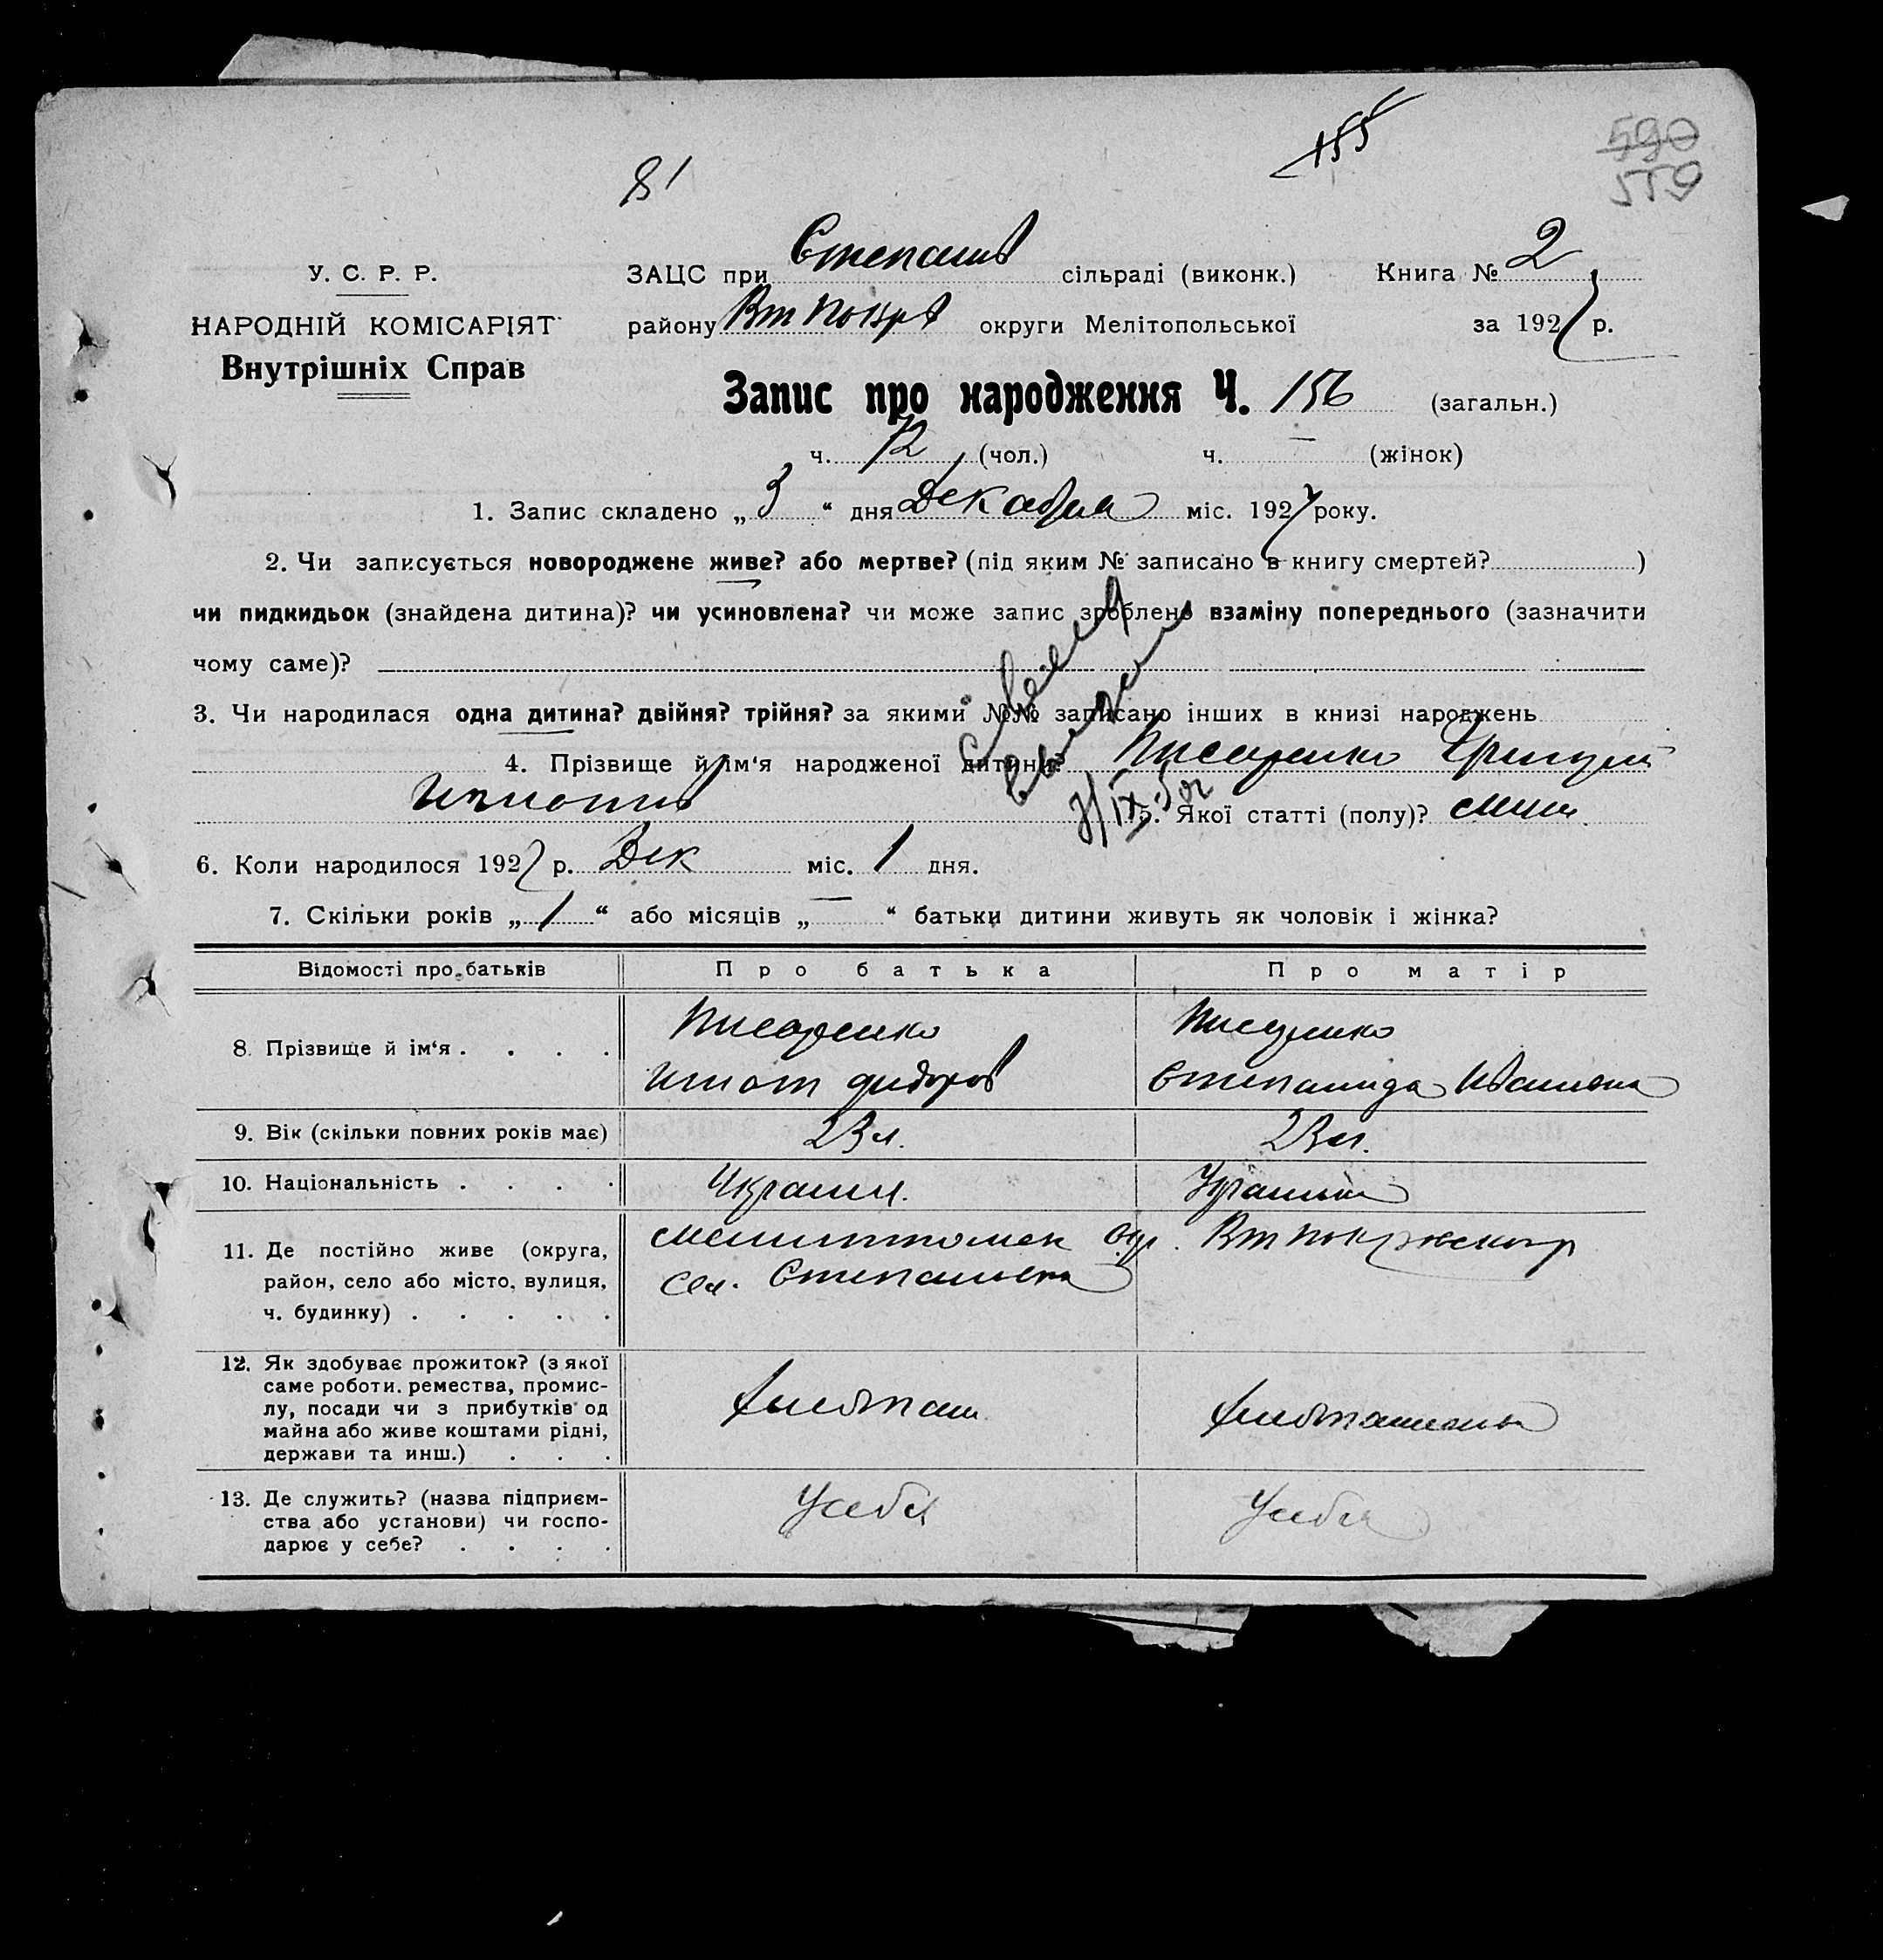 81
155
590
559
У. С. Р. Р.
НАРОДНІЙ КОМІСАРІЯТ
Внутрішніх Справ
ЗАЦС при Степанів сільраді (виконк.) Книга № 2
району Вт Покрв округи Мелітопольської за 1927 р.
Запис про народження Ч. 156 (загальн.)
ч. 72 (чол.) ч. — (жінок)
1. Запис складено „ 3 “ дня Декабря міс. 1927 року.
2. Чи записується новороджене живе? або мертве? (під яким № записано в книгу смертей? )
чи пидкидьок (знайдена дитина)? чи усиновлена? чи може запис зроблено взаміну попереднього (зазначити
чому саме)?
3. Чи народилася одна дитина? двійня? трійня? за якими №№ записано інших в книзі народжень
4. Прізвище й ім‘я народженої дитини? Писаренко
5. Якої статті (полу)?
6. Коли народилося 1927 р. Дек міс. 1 дня.
7. Скільки років „ 1 “ або місяців „ — “ батьки дитини живуть як чоловік і жінка?
Відомості про батьків Про батька Про матір
8. Прізвище й ім‘я . . . . Писаренко Писаренко
Степанида Ивановна
9. Вік (скільки повних років має) 23 л. 23 л.
10. Національність . . . . Украин. Украинка
11. Де постійно живе (округа, район, село або місто, вулиця, ч. будинку) . . . . . Мелитопол окр. Вт Покровског р
сел. Степановка
12. Як здобуває прожиток? (з якої
саме роботи. ремества, промис-
лу, посади чи з прибутків од
майна або живе коштами рідні,
держави та инш.) . . .
13. Де служить? (назва підприєм-
ства або установи) чи госпо-
дарює у себе? . . . . У себя У себя